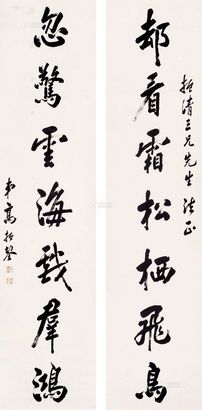 却看霜松栖飛鳥
哲清三兄先生法正
忽驚雲海戲群鴻
弟高振霄